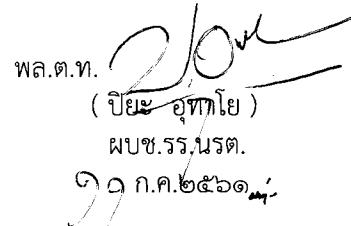 พล.ต.ท.
( ปิยะ อุทาโย )
ผบช.รร.นรต.
๑๑ ก.ค.๒๕๖๑